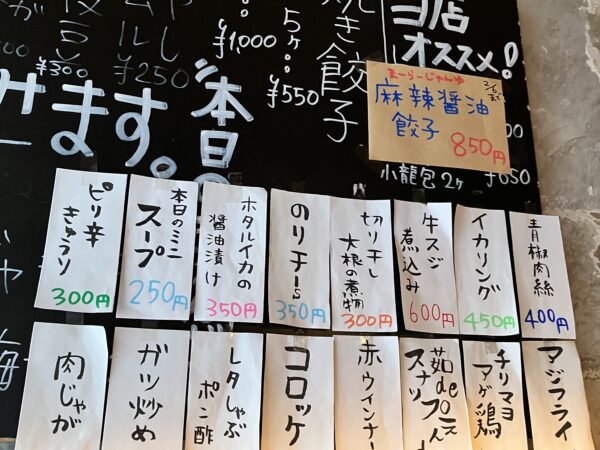 当店
オススメ!
まーらーじゃんゆ
麻辣醤油
餃子
850円
小龍包2ケ ¥650
焼き餃子
5ケ
¥550
¥1,000
¥250
¥300
本日の
ます。
青椒肉絲
400円
イカリング
450円
牛スジ
煮込み
600円
切り干し
大根の煮物
300円
のりチーズ
350円
ホタルイカの
醤油漬け
350円
本日のミニ
スープ
250円
ピリ辛
きゅうり
300円
アジフライ
チリマヨ
マゲ鶏
茹de
スナップえんど
赤ウィンナー
コロッケ
レタしゃぶ
ポン酢
ガツ炒め
肉じゃが